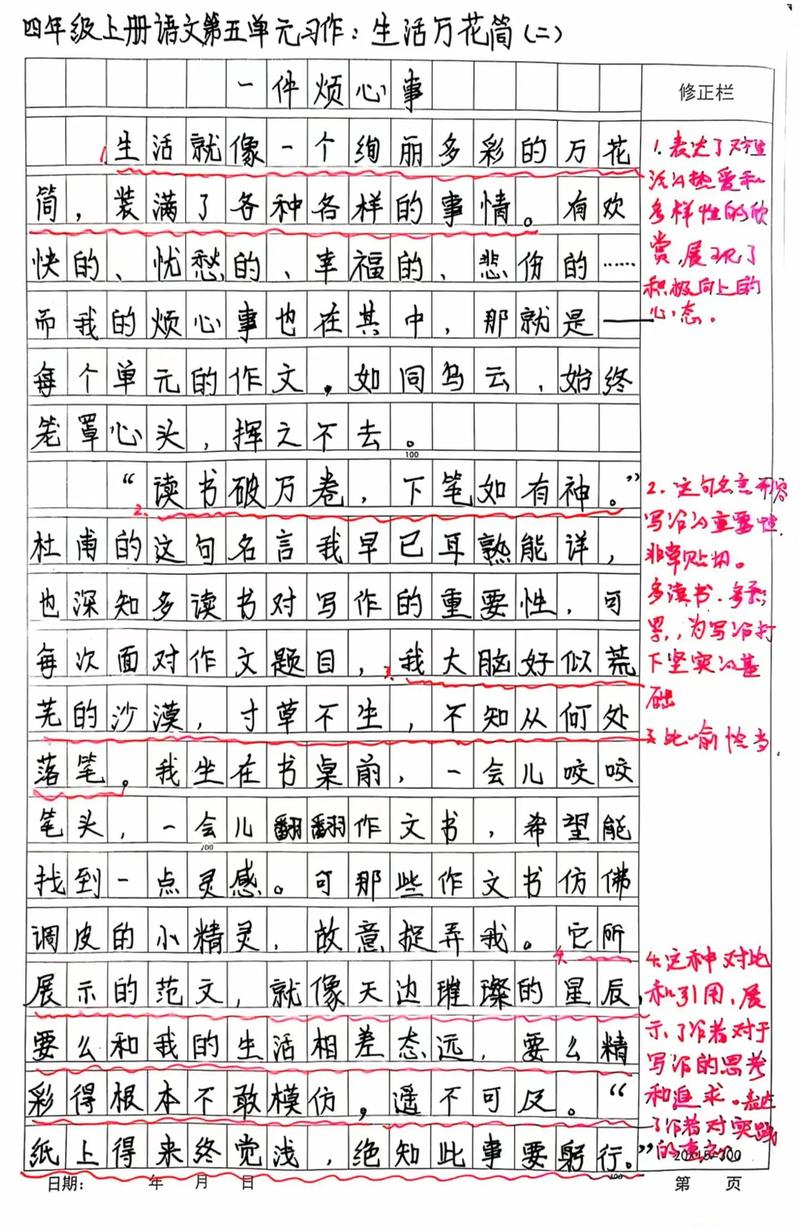 四年级上册语文第五单元习作：生活万花筒（二）
一件烦心事
修正栏
1.生活就像一个绚丽多彩的万花
筒，装满了各种各样的事情。有欢
快的、忧愁的、幸福的、悲伤的……
而我的烦心事也在其中，那就是——
每个单元的作文，如同乌云，始终
笼罩心头，挥之不去。
100
2.“读书破万卷，下笔如有神。”
杜甫的这句名言我早已耳熟能详，
也深知多读书对写作的重要性，可
每次面对作文题目，3.我大脑好似荒
芜的沙漠，寸草不生，不知从何处
落笔。我坐在书桌前，一会儿咬咬
笔头，一会儿翻翻作文书，希望能
找到一点灵感。可那些作文书仿佛
调皮的小精灵，故意捉弄我。4.它所
展示的范文，就像天边璀璨的星辰，
要么和我的生活相差态远，要么精
彩得根本不敢模仿，遥不可及。“
纸上得来终觉浅，绝知此事要躬行。”
日期： 年 月 日
第 页
1.表达了对生
活的热爱和
多样性的欣
赏，展现了
积极向上的
心态。
2.这句名言形容
写作的重要性
非常贴切。
多读书、多积
累，为写作打
下坚实的基
础
3.比喻恰当
4.这种对比
和引用，展
示了作者对于
写作的思考
和追求。表达
了作者对实践